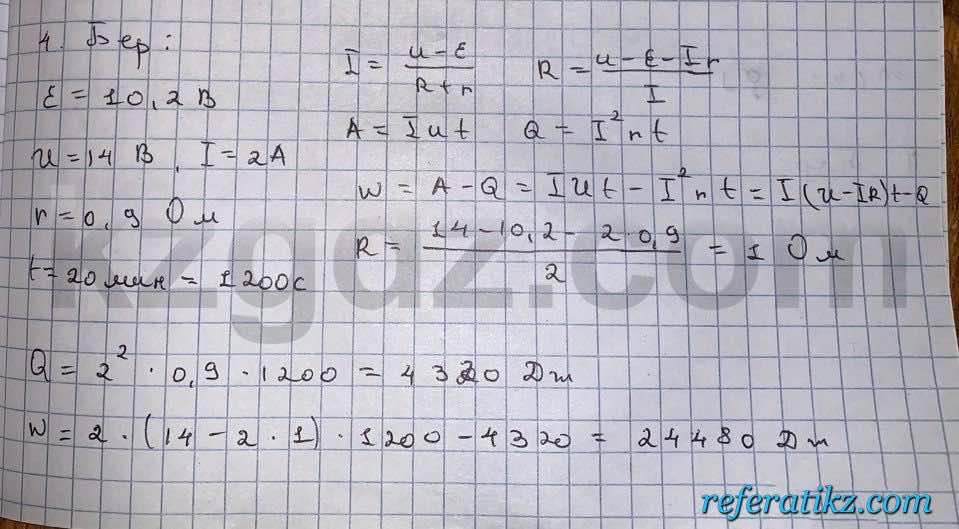 4. Бер:
ε = 10,2 В
u = 14 В, I = 2А
r = 0,9 Ом
t = 20 мин = 1200с
I = (u - ε)/(R + r)   R = (u - ε - Ir)/I
A = Iut   Q = I²rt
W = A - Q = IUt - I²rt = I(U - IR)t - Q
R = (14 - 10,2 - 2·0,9)/2 = 1 Ом
Q = 2² · 0,9 · 1200 = 4320 Дж
W = 2 · (14 - 2 · 1) · 1200 - 4320 = 24480 Дж
kzgdz.com
referatikz.com